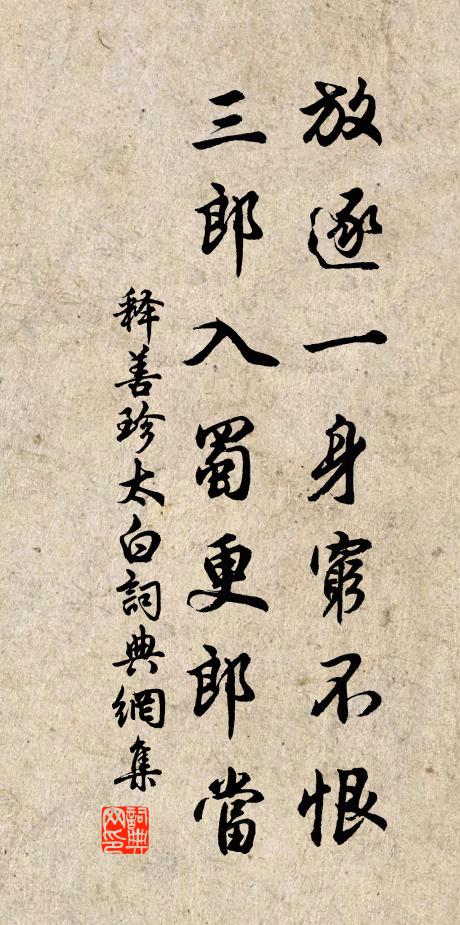 放逐一身窮不恨
三郎入蜀更郎當
释善珍太白詞典網集
詞典網印